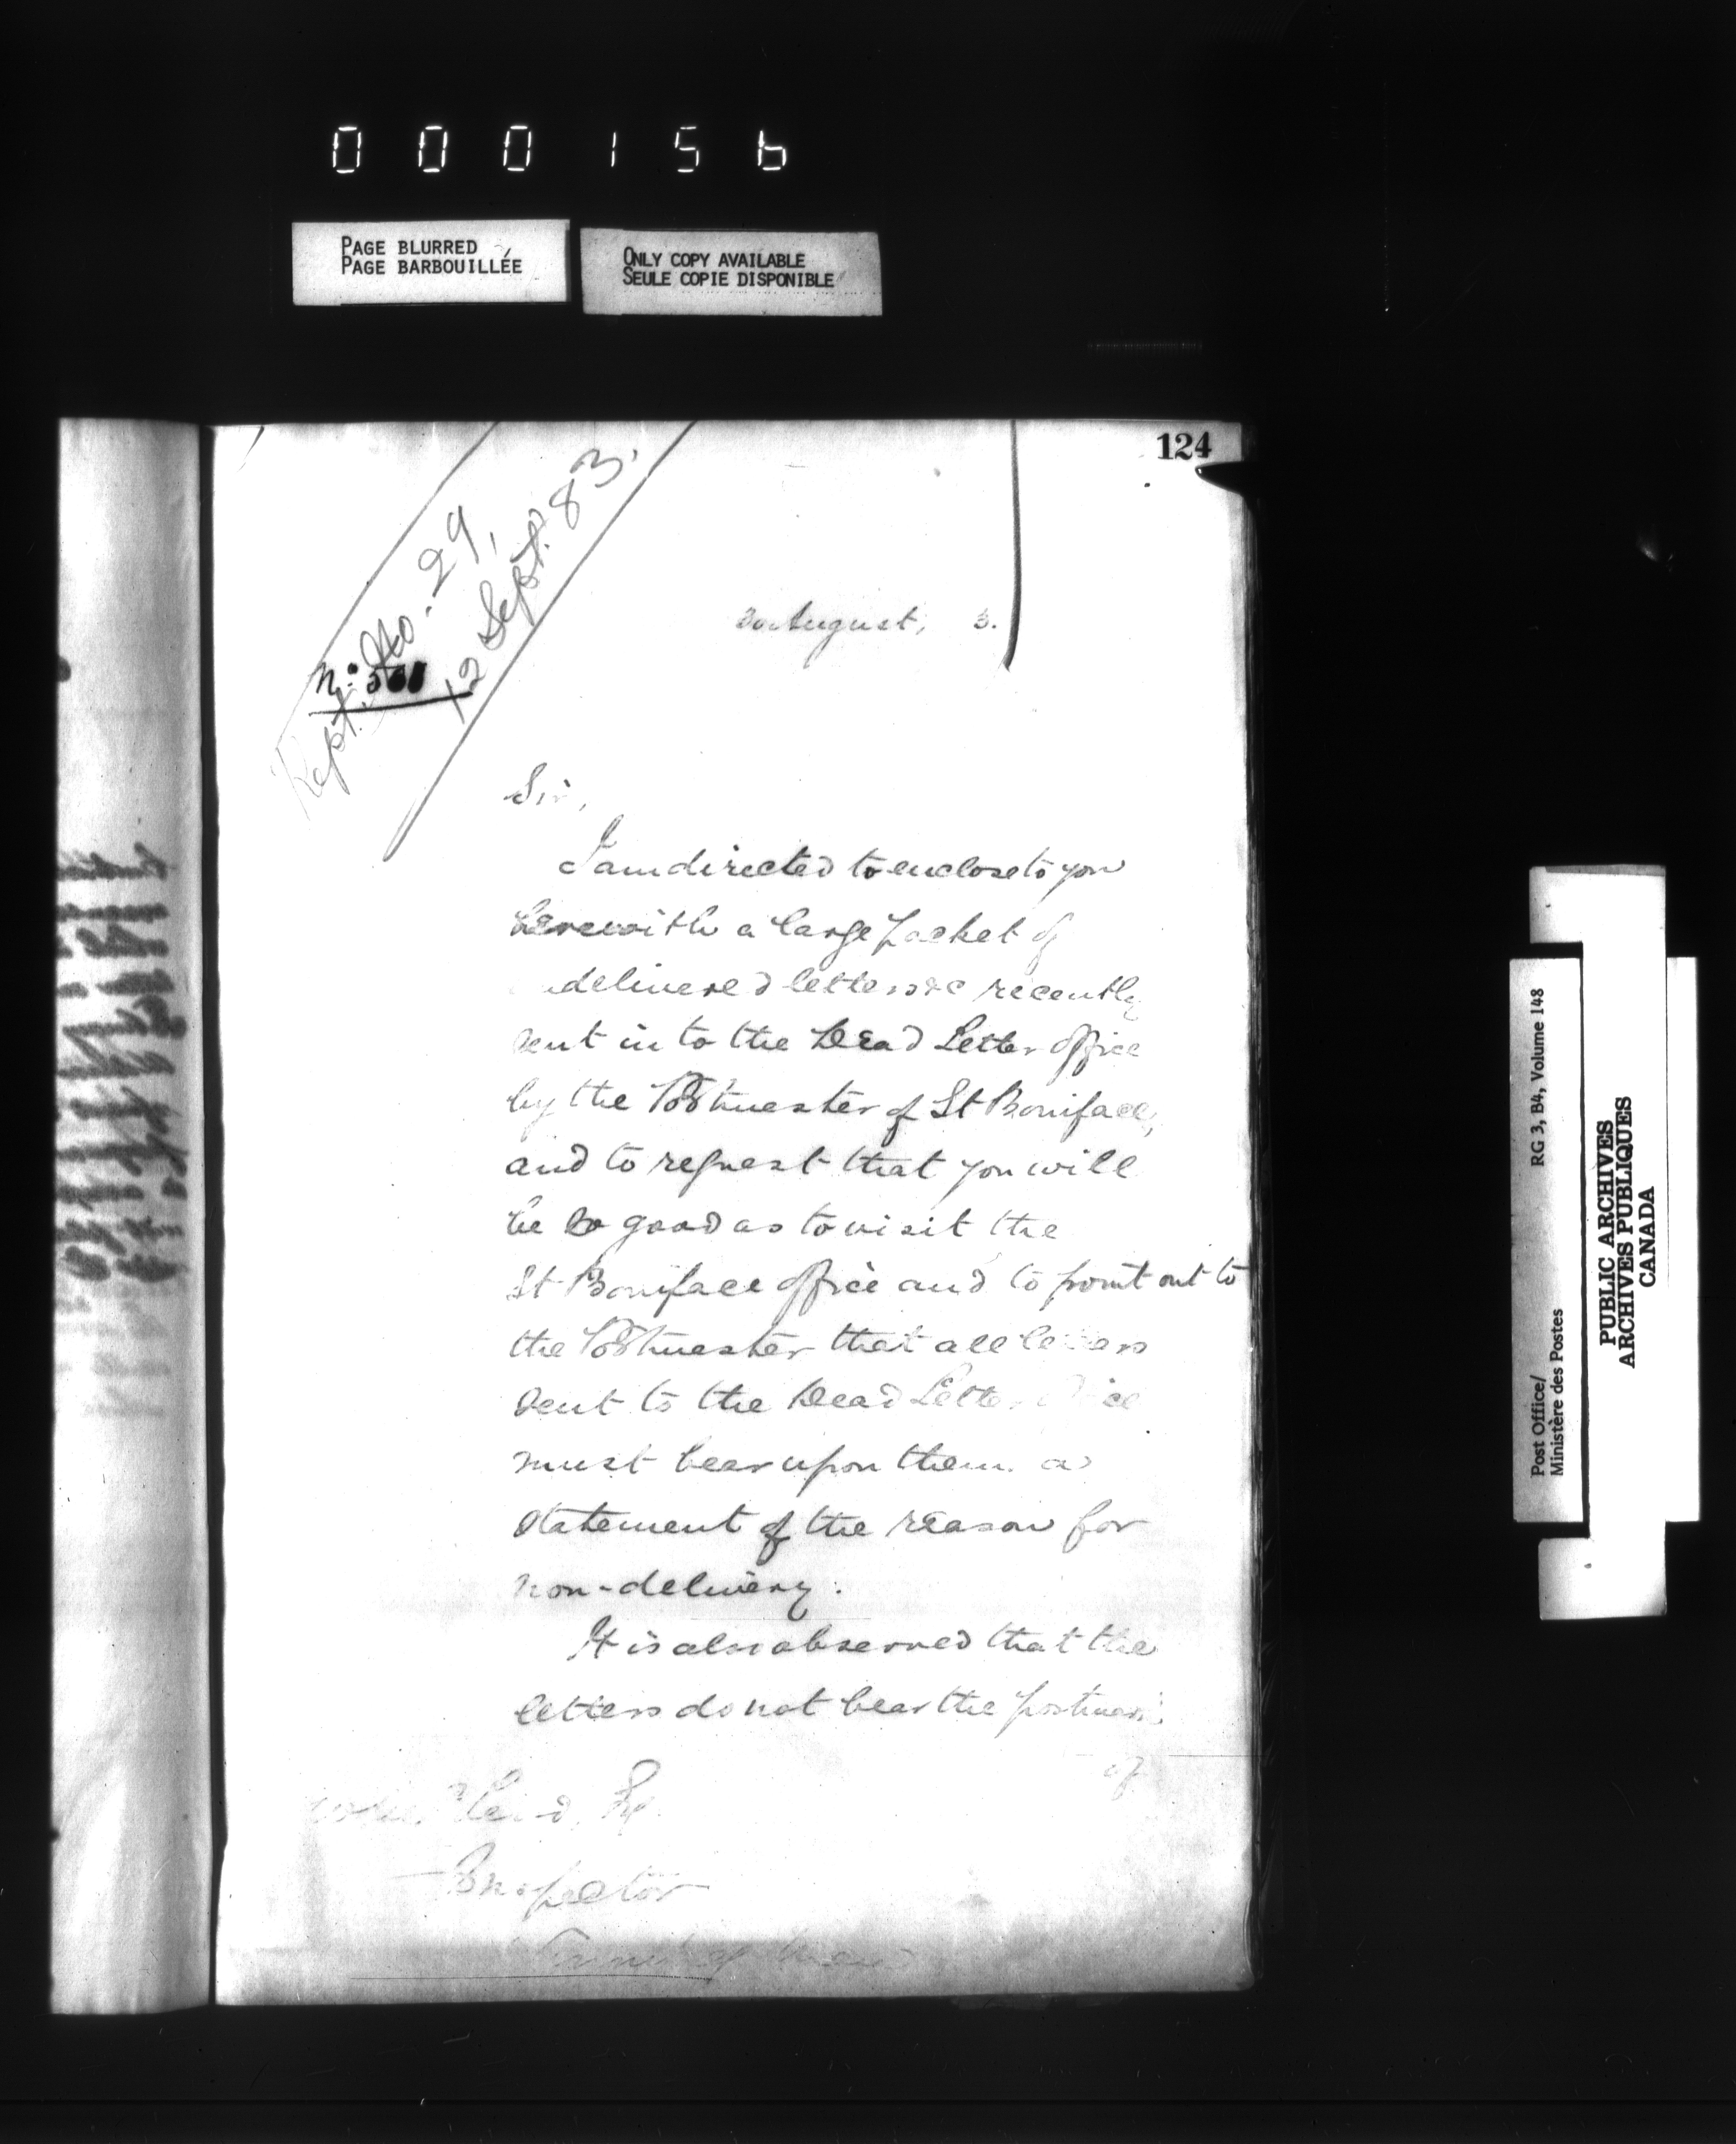 000156
PAGE BLURRED
PAGE BARBOUILLÉE
ONLY COPY AVAILABLE
SEULE COPIE DISPONIBLE
124
Rept. No. 29,
12 Sept. 83.
No. 561
30 August, 3.
Sir,
I am directed to enclose to you
herewith a large packet of
undelivered letters &c recently
sent in to the Dead Letter Office
by the Postmaster of St Boniface,
and to request that you will
be so good as to visit the
St Boniface Office and to point out to
the Postmaster that all letters
sent to the Dead Letter Office
must bear upon them a
statement of the reason for
non-delivery.
It is also observed that the
letters do not bear the postmark
of
Inspector
Winnipeg
Post Office/
Ministère des Postes
RG 3, B4, Volume 148
PUBLIC ARCHIVES
ARCHIVES PUBLIQUES
CANADA